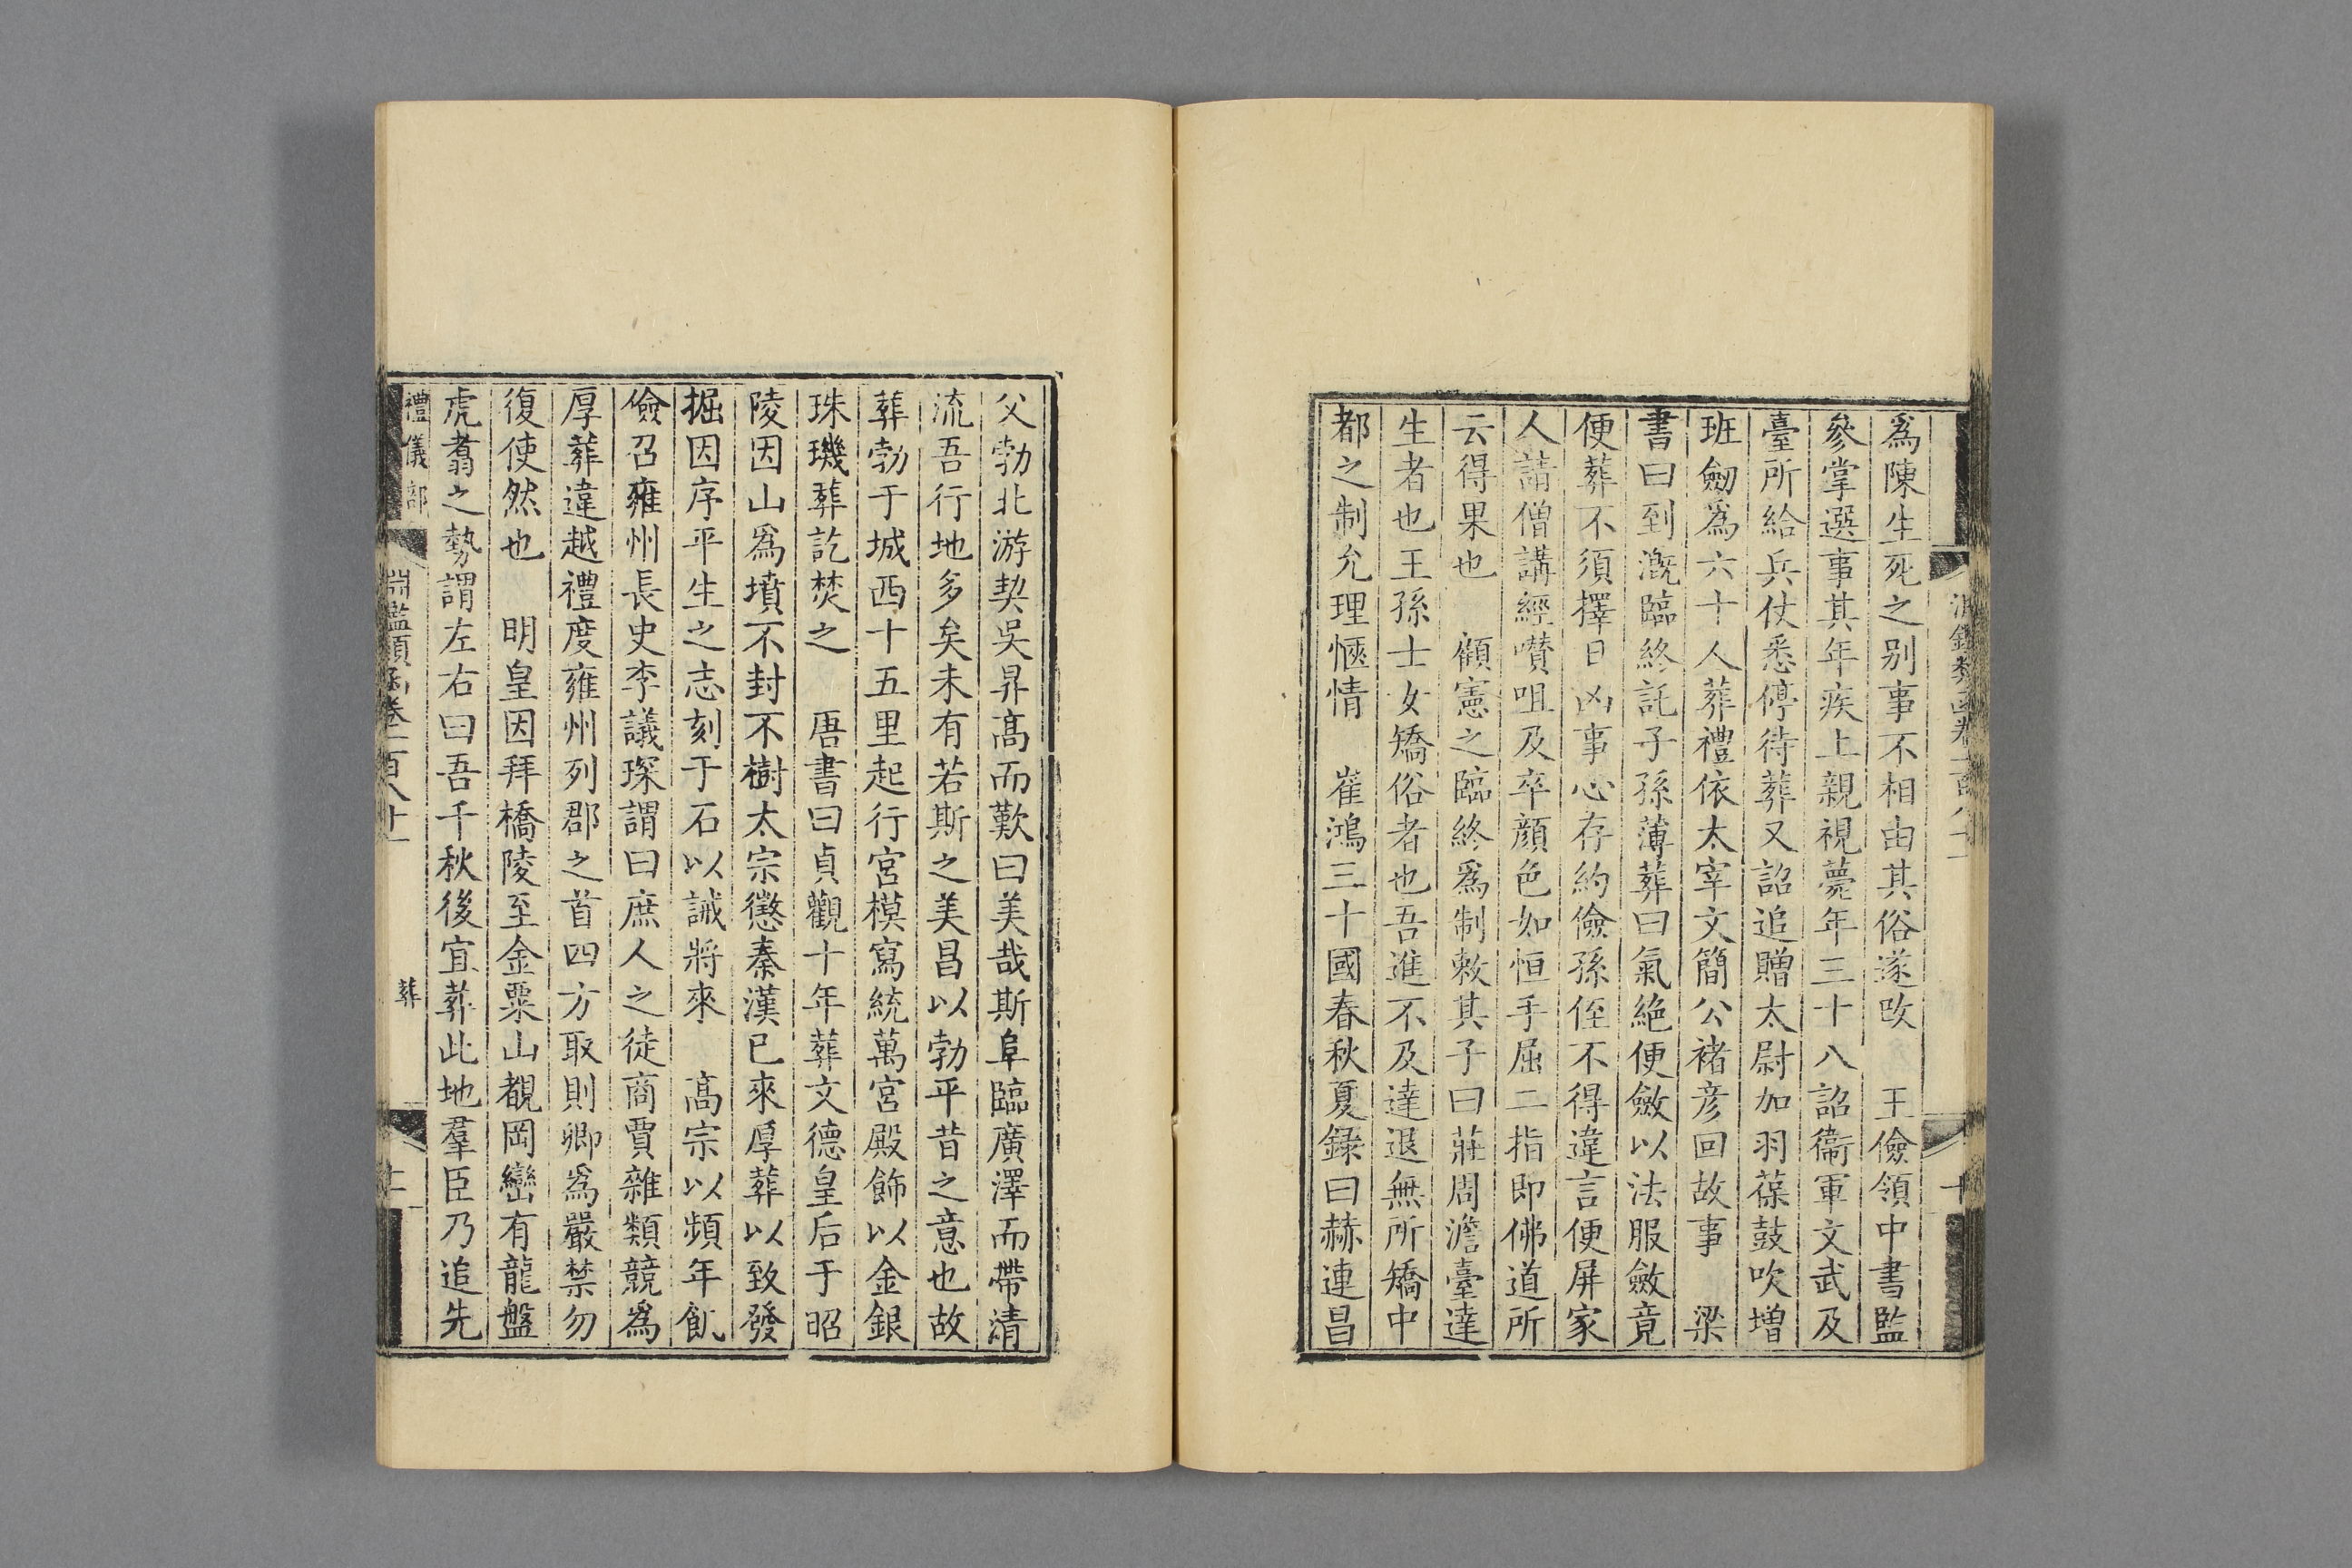 爲陳生死之别事不相由其俗遂改　王儉領中書監
叅掌選事其年疾上親視薨年三十八詔衞軍文武及
臺所給兵仗悉停待葬又詔追贈太尉加羽葆鼓吹増
班劒爲六十人葬禮依太宰文簡公褚彦回故事　梁
書曰到溉臨終託子孫薄葬曰氣絶便斂以法服斂竟
便葬不須擇日凶事必存約儉孫侄不得違言便屏家
人請僧講經囋咀及卒顔色如恒手屈二指即佛道所
云得果也　顧憲之臨終爲制敕其子曰莊周澹臺達
生者也王孫士女矯俗者也吾進不及達退無所矯中
都之制允理愜情　崔鴻三十國春秋夏録曰赫連昌
父勃北游契吳昇髙而歎曰美哉斯阜臨廣澤而帶清
流吾行地多矣未有若斯之美昌以勃平昔之意也故
葬勃于城西十五里起行宮模寫統萬宮殿飾以金銀
珠璣葬訖焚之　唐書曰貞觀十年葬文德皇后于昭
陵因山爲墳不封不樹太宗懲秦漢已來厚葬以致發
掘因序平生之志刻于石以誡將來　髙宗以頻年飢
儉召雍州長史李議琛謂曰庶人之徒商賈雜類競爲
厚葬違越禮度雍州列郡之首四方取則卿爲嚴禁勿
復使然也　明皇因拜橋陵至金粟山覩岡巒有龍盤
虎翥之勢謂左右曰吾千秋後宜葬此地羣臣乃追先
禮儀部　淵鑑類函卷一百八十一　葬